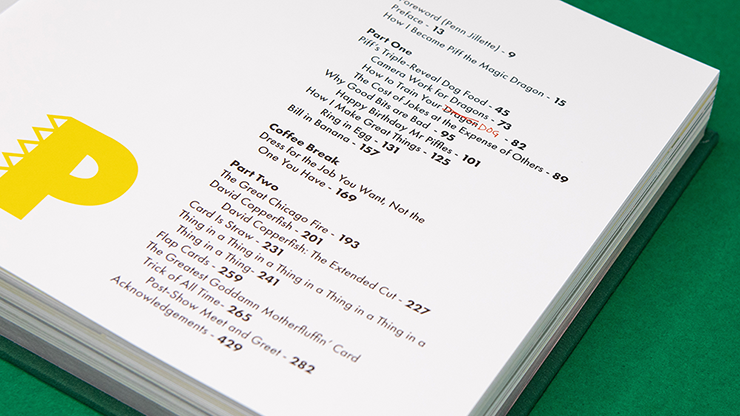 P
Foreword (Penn Jillette) - 9
Preface - 13
How I Became Piff the Magic Dragon - 15
Part One
Piff's Triple-Reveal Dog Food - 45
Camera Work for Dragons - 73
How to Train Your Dragon DOG - 82
The Cost of Jokes at the Expense of Others - 89
Why Good Bits are Bad - 95
Happy Birthday Mr Piffles - 101
How I Make Great Things - 125
Ring in Egg - 131
Bill in Banana - 157
Coffee Break
Dress for the Job You Want, Not the
One You Have - 169
Part Two
The Great Chicago Fire - 193
David Copperfish - 201
David Copperfish: The Extended Cut - 227
Card Is Straw - 231
Thing in a Thing in a Thing in a Thing in a Thing in a
Thing in a Thing- 241
Flap Cards - 259
The Greatest Goddamn Motherfluffin' Card
Trick of All Time - 265
Post-Show Meet and Greet - 282
Acknowledgements - 429